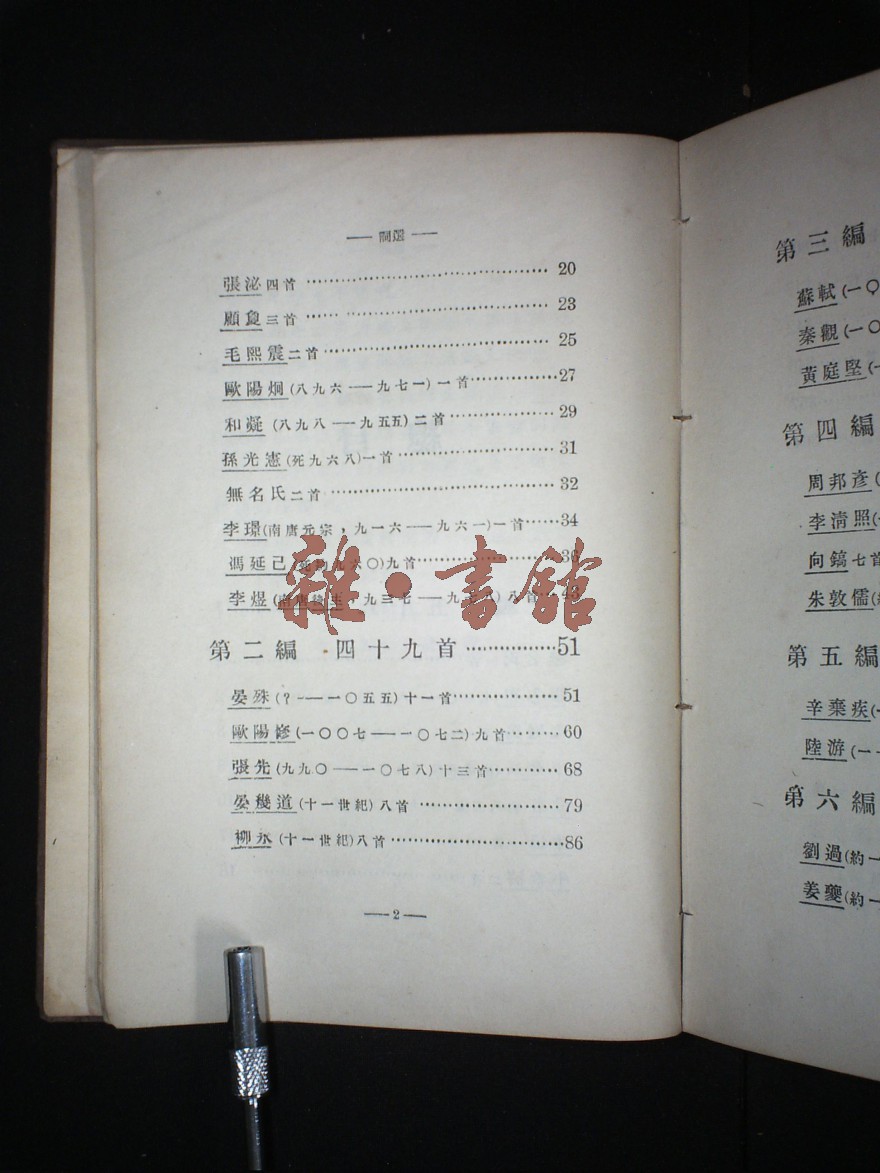 —— 詞選 ——
張泌四首 …………………………… 20
顧夐三首 …………………………… 23
毛熙震二首 …………………………… 25
歐陽烱(八九六——九七一)一首 …………… 27
和凝 (八九八——九五五)二首 …………… 29
孫光憲(死九六八)一首 …………………… 31
無名氏二首 …………………………… 32
李璟(南唐元宗，九一六——九六一)一首 …… 34
馮延己(死約九六〇)九首 ………………… 36
李煜(南唐後主，九三七——九七八)八首 … 43
雜·書館
第二編 四十九首 ……………… 51
晏殊(?——一〇五五)十一首 ……………… 51
歐陽修(一〇〇七——一〇七二)九首 ……… 60
張先(九九〇——一〇七八)十三首 ………… 68
晏幾道(十一世紀)八首 …………………… 79
柳永 (十一世紀)八首 …………………… 86
—— 2 ——
第三編
蘇軾(一〇
秦觀(一〇
黃庭堅(一
第四編
周邦彥(
李清照(一
向鎬七首
朱敦儒(
第五編
辛棄疾(一
陸游(一一
第六編
劉過(約一
姜夔(約一